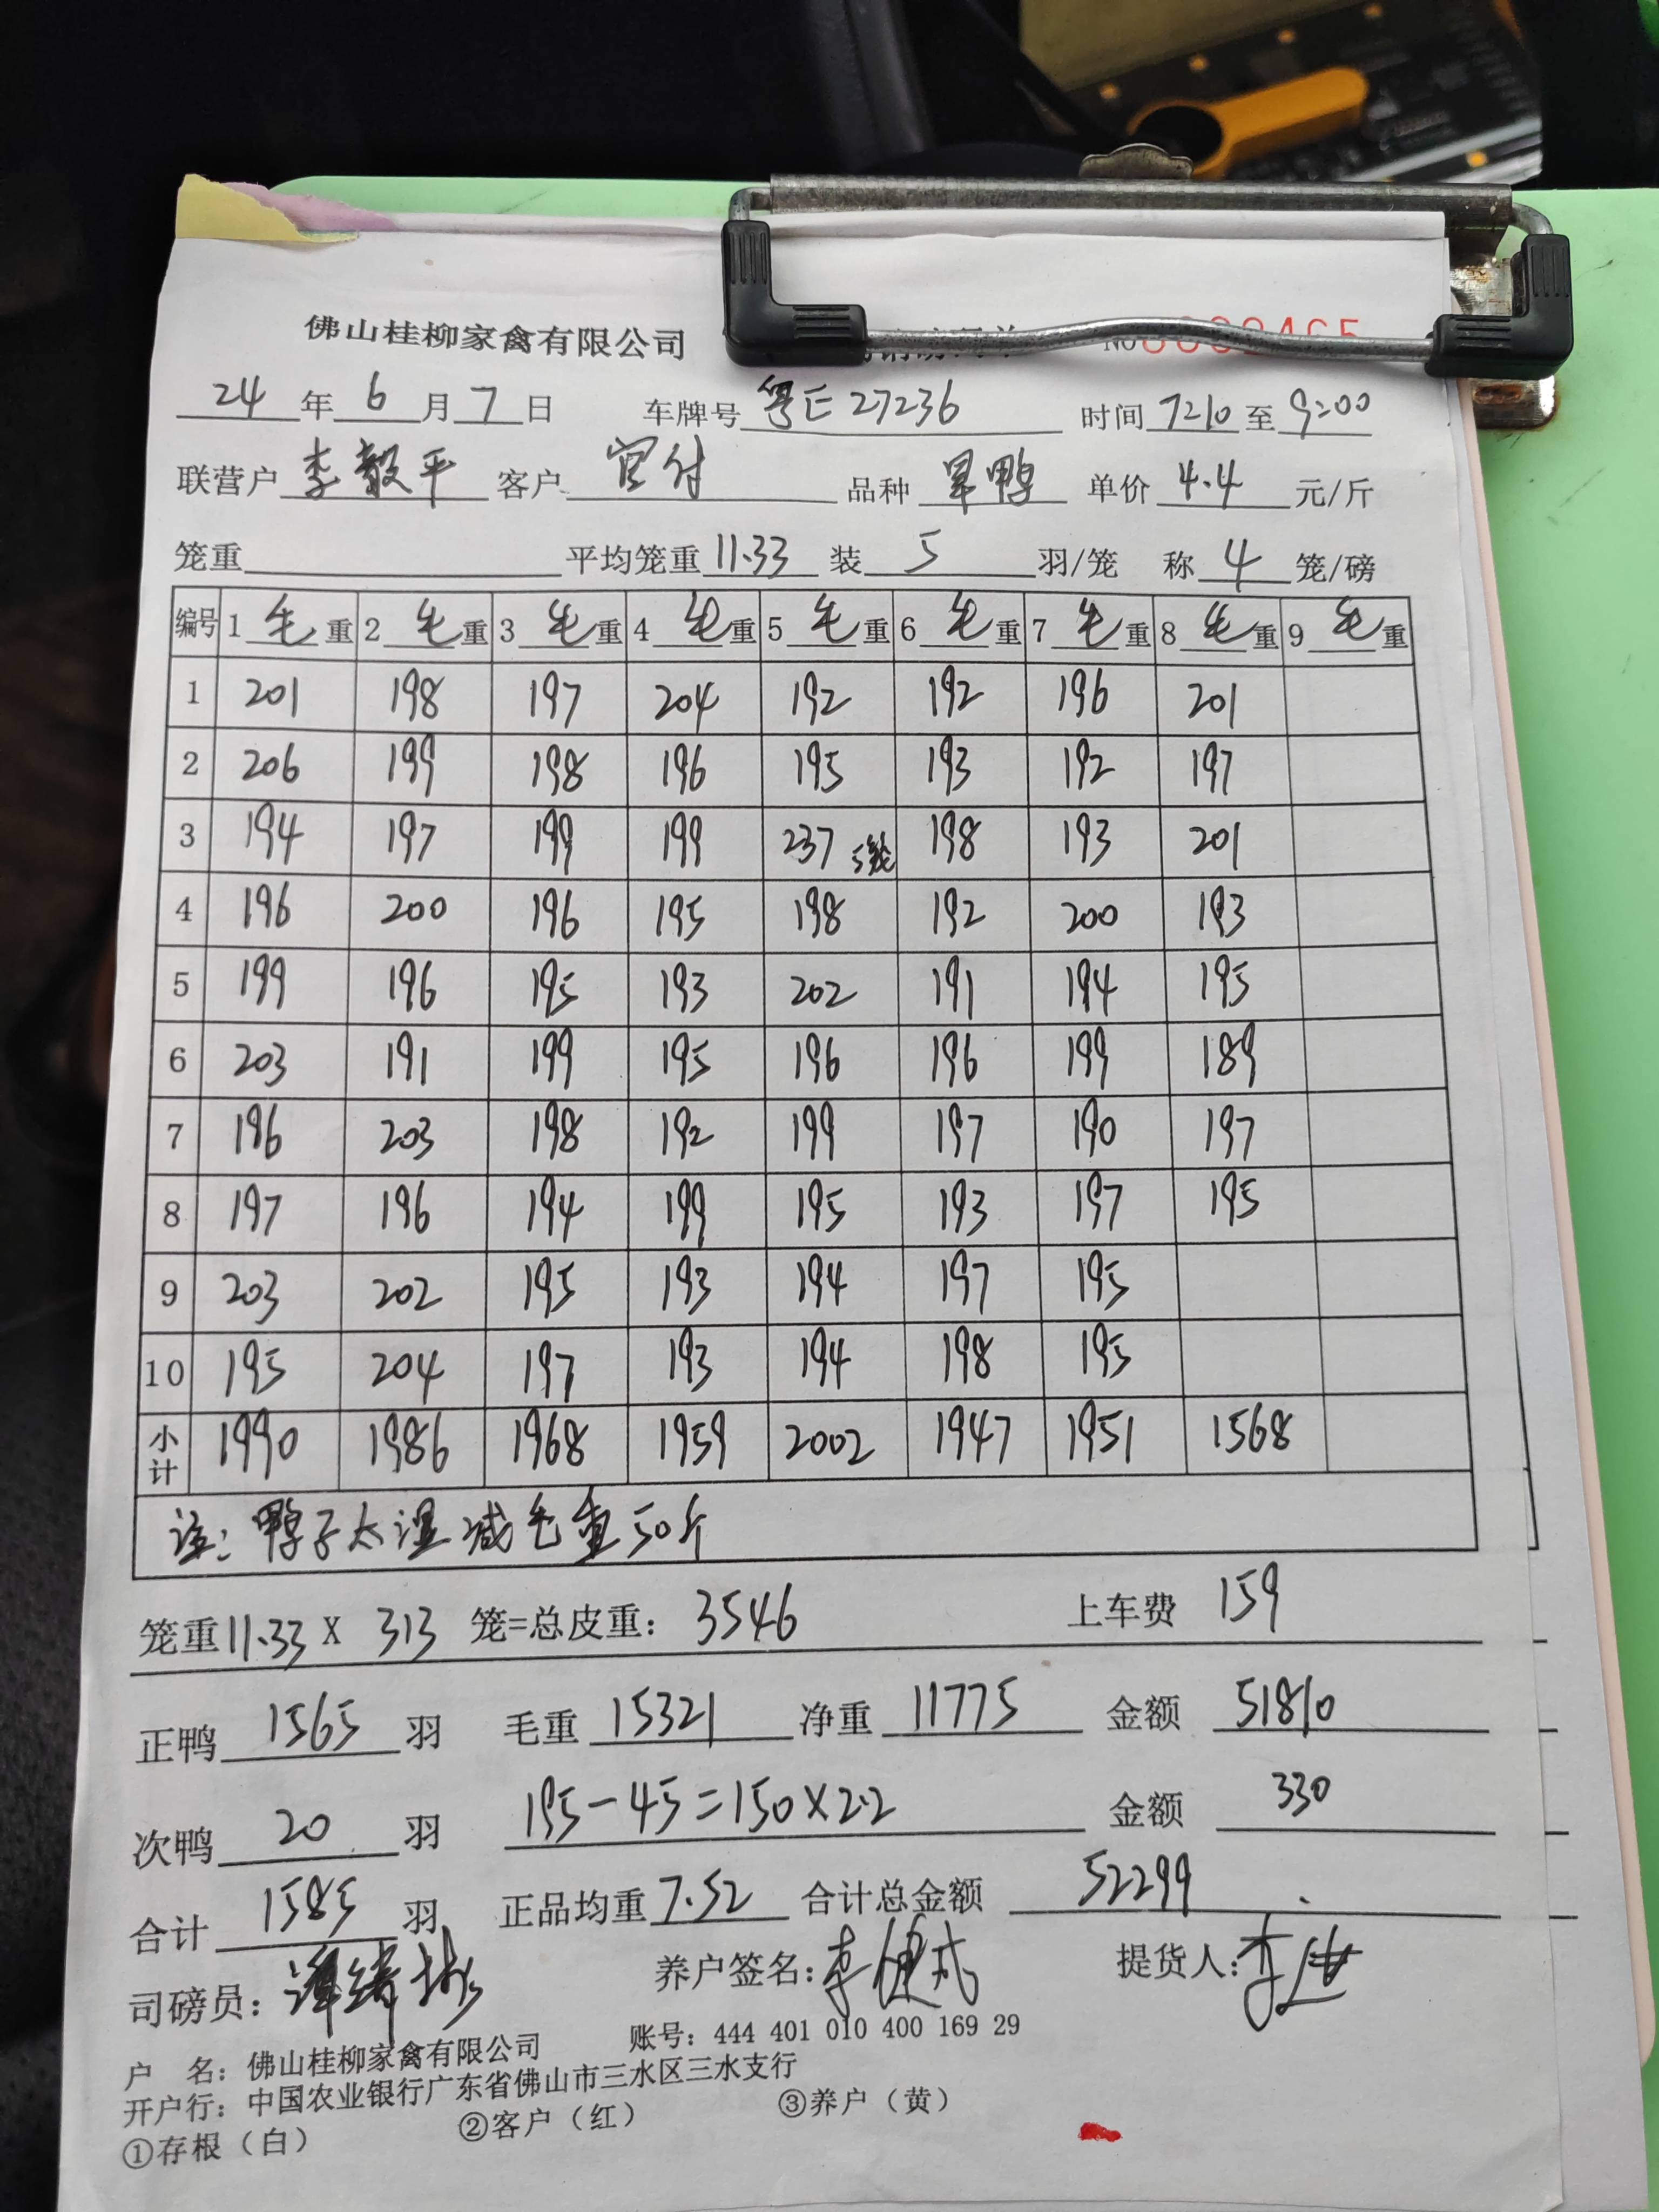 佛山桂柳家禽有限公司
24年6月7日 车牌号粤E27236 时间7210至9:00
联营户李毅平 客户 品种旱鸭 单价4.4元/斤
笼重 平均笼重11.33 装5羽/笼 称4笼/磅
编号 1毛重 2毛重 3毛重 4毛重 5毛重 6毛重 7毛重 8毛重 9毛重
1 201 198 197 204 192 192 196 201
2 206 199 198 196 195 193 192 197
3 194 197 199 199 237 5笼 198 193 201
4 196 200 196 195 198 192 200 193
5 199 196 195 193 202 191 194 195
6 203 191 199 195 196 196 199 189
7 196 203 198 192 199 197 190 197
8 197 196 194 199 195 193 197 195
9 203 202 195 193 194 197 195
10 195 204 197 193 194 198 195
小计 1990 1986 1968 1959 2002 1947 1951 1568
注：鸭子太湿减毛重50斤
笼重11.33X 313 笼=总皮重：3546 上车费 159
正鸭1565羽 毛重15321 净重11775 金额51810
次鸭20羽 195-45=150×2.2 金额330
合计1585羽 正品均重7.52 合计总金额52299
司磅员： 养户签名： 提货人：
户 名：佛山桂柳家禽有限公司 账号：444 401 010 400 169 29
开户行：中国农业银行广东省佛山市三水区三水支行
①存根（白） ②客户（红） ③养户（黄）